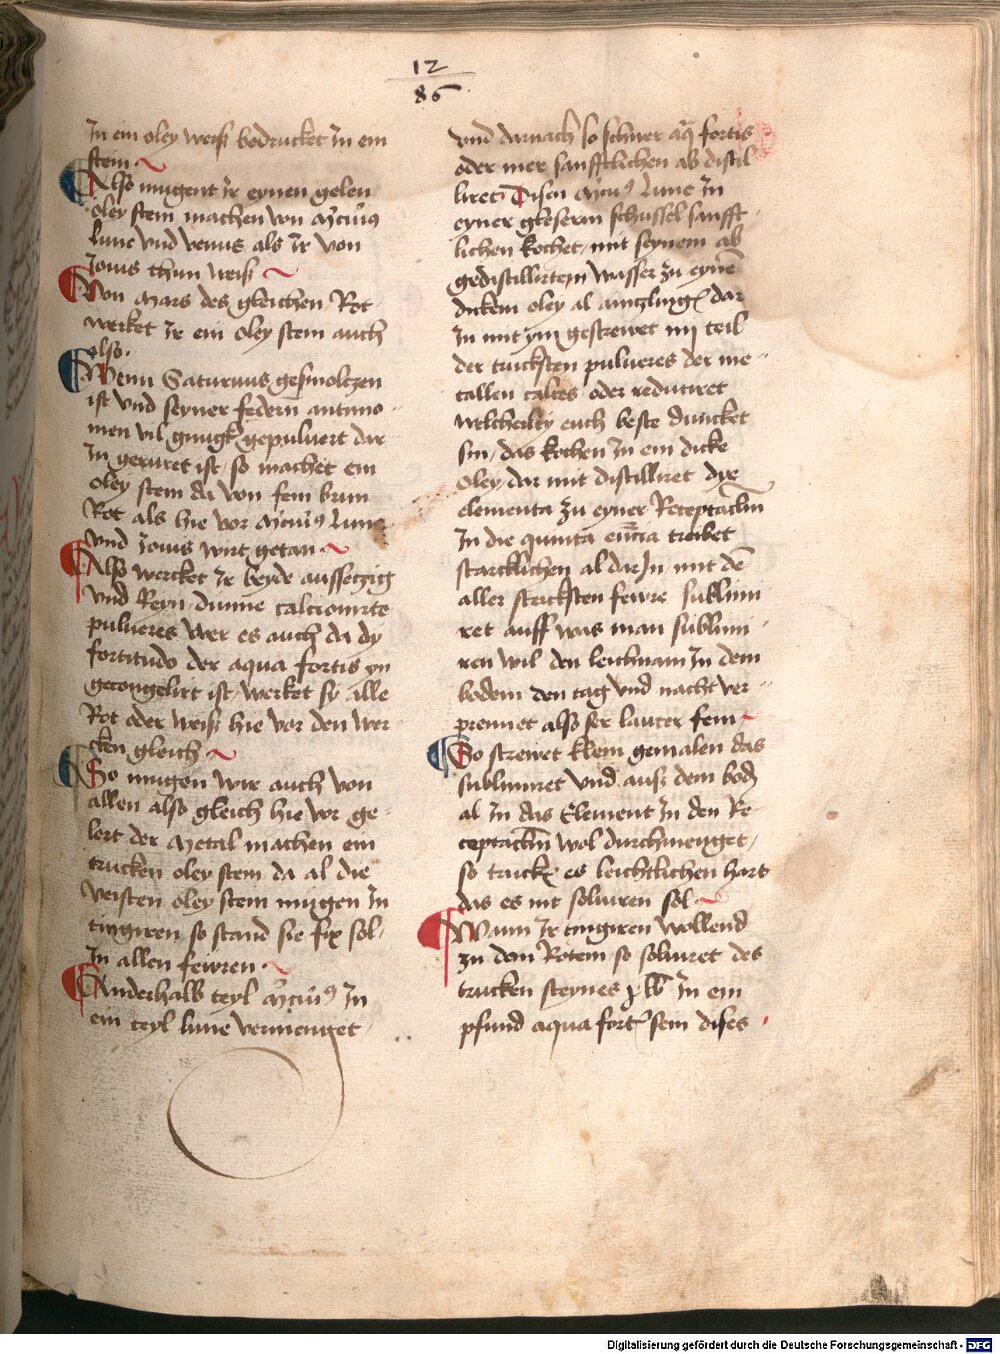 12
86
Jn ein oley weiß bedrucket Jn ein
stein
Also mugent Jr eynen gelen
oley stein machen von mrcurius
lune vnd venus als Jr von
Jouis thun weiß
Von Mars des gleichen Rot
werket Jr ein oley stein auch
also.
Wenn Saturnus gesmoltzen
ist vnd seyner federn antimo
men vil gnugk gepuluert dar
Jn geruret ist so machet ein
oley stein da von fein brun
Rot als hie vor mrcurius lune
vnd Jouis wirt getan
Also wercket Jr beyde aussetzig
vnd Reyn dinne calcionirte
pulueres wer es auch da dy
fortitudo der aqua fortis yn
gecongelirt ist werket sy alle
Rot oder weiß hie vor den wer
cken gleich
So mugen wir auch von
allen also gleich hie vor ge
lert der metal machen ein
trucken oley stein da al die
veisten oley stein mugen Jn
tingiren so stand sie fix sol
Jn allen fewren
Anderhalb teyl mrcurius Jn
ein teyl lune vermenget
vnd darnach so schier aq fortis
oder mer sanfftlichen ab distil
liret Disen mrcurius lune Jn
eyner gleserin schussel sanfft
lichen kochet mit seynem ab
gedistillirtem wasser zu eyne
dickem oley al dar
Jn mit ym gestrewet iiij teil
der trucksten pulueres der me
tallen calces oder reduciret
welcherley euch beste duncket
sin das kochen Jn ein dicke
oley dar mit distilliret dye
elementa zu eyner Receptaclm
Jn die quinta encia treibet
starcklichen al dar Jn mit de
aller sterksten fewre sublimi
ret auff was man sublimi
ren wil den leichnam Jn dem
bodem den tag vnd nacht ver
prennet also ser lauter fein
So strewet klein gemalen das
sublimiret vnd auß dem bod
al Jn das Element Jn den Re
ceptaclm wol durchmenget
so truck es leichtlichen hart
das es nit soluiren sol
Wann Jr tingiren wollend
zu dem Rotem so soluiret des
trucken steynes j lb Jn ein
pfund aqua fort sein dises
Digitalisierung gefördert durch die Deutsche Forschungsgemeinschaft - DFG